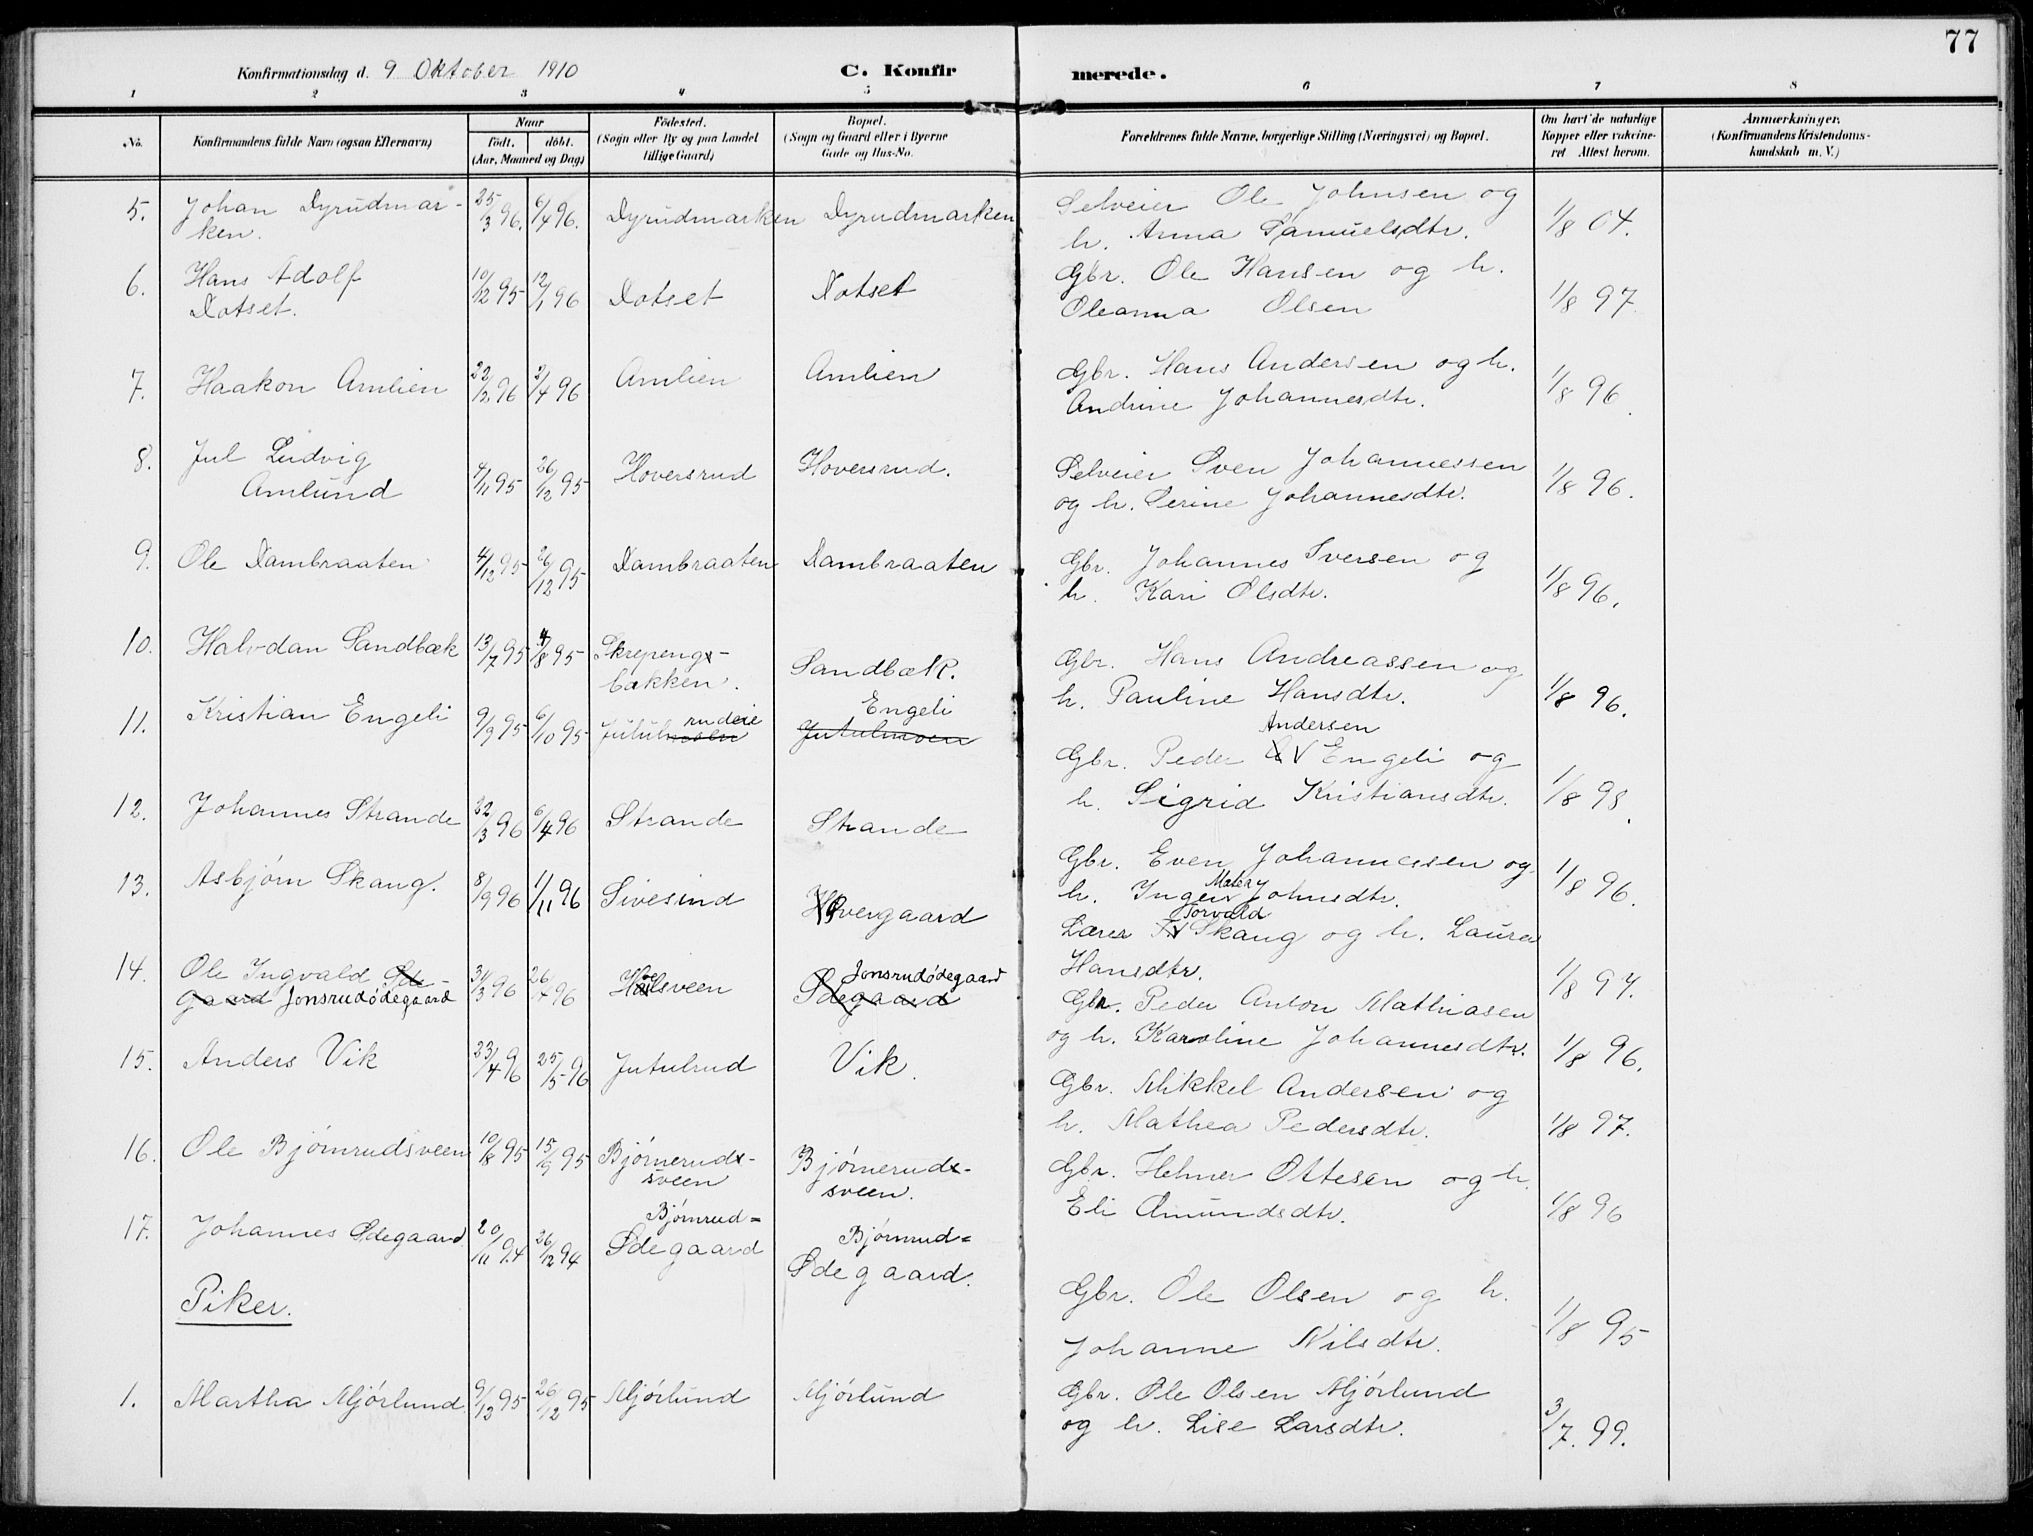 77
Konfirmationsdag d. 9 Oktober 1910 C. Konfirmerede.
1 2 3 4 5 6 7 8
No. Konfirmandens fulde Navn (ogsaa Efternavn) Naar født. døbt. (Aar, Maaned og Dag) Fødested. (Sogn eller By og paa Landet tillige Gaard) Bopæl. (Sogn og Gaard eller i Byerne Gade og Hus-No. Forældrenes fulde Navne, borgerlige Stilling (Næringsvei) og Bopæl. Om havt de naturlige Kopper eller vakcineret Attest herom. Anmærkninger. (Konfirmandens Kristendomskundskab m. V.)
5. Johan Dyrudmar- 25/3 96. 6/4 96. Dyrudmarken Dyrudmarken Selveier Ole Johnsen og 1/8 04.
ken. h. Anna Samuelsdtr.
6. Hans Adolf 10/12 95 12/1 96 Dotset Dotset Gbr. Ole Hansen og h. 1/8 97
Dotset. Oleanna Olsen
7. Haakon Amlien 22/12 96 3/4 96 Amlien Amlien Gbr. Hans Andersen og h. 1/8 96.
Andrine Johannesdtr.
8. Jul Ludvig 4/11 95 26/12 95 Hoversrud Hoversrud. Selveier Sven Johannessen 1/8 96.
Amlund og h. Serine Johannesdtr.
9. Ole Dambraaten 4/12 95 26/12 95 Dambraaten Dambraaten Gbr. Johannes Iversen og 1/8 96.
h. Kari Olsdtr.
10. Halvdan Sandbæk 13/7 95 4/8 95 Skrepengs- Sandbæk. Gbr. Hans Andreassen og 1/8 96.
bakken. h. Pauline Hansdtr.
11. Kristian Engeli 9/9 95 6/10 95 Jutulrudeie Engeli Jutulmoen Andersen
Gbr. Peder Engeli og 1/8 98.
h. Sigrid Kristiansdtr.
12. Johannes Strande 22/3 96 6/4 96 Strande Strande Gbr. Even Johannesen og 1/8 96.
h. Inger Johnsdtr.
13. Asbjørn Skang. 8/9 96 1/11 96 Sivesind Øvergaard Torvald
Lærer Skang og h. Laura
Hansdtr. 1/8 97.
14. Ole Ingvald Øde- 31/3 96 26/4 96 Hoelsveen Jonsrudødegaard Ødegaard
gaard Jonsrudødegaard Gbr. Peder Anton Mathiasen
og h. Karoline Johannesdtr. 1/8 96.
15. Anders Vik 23/4 96 25/5 96 Jutulrud Vik. Gbr. Mikkel Andersen og
h. Mathea Pedersdtr. 1/8 97.
16. Ole Bjørnrudsveen 10/8 95 15/9 95 Bjørneruds- Bjørneruds- Gbr. Helmer Ottesen og h.
sveen sveen. Eli Amundsdtr. 1/8 96
17. Johannes Ødegaard 20/11 94 26/12 94 Bjørnrud= Ødegaard Bjørnrud= Ødegaard.
Piker. Gbr. Ole Olsen og h. 1/8 95
Johanne Nilsdtr.
1. Martha Mjørlund 9/12 95 26/12 95 Mjørlund Mjørlund Gbr. Ole Olsen Mjørlund 3/7. 99.
og h. Lise Larsdtr.